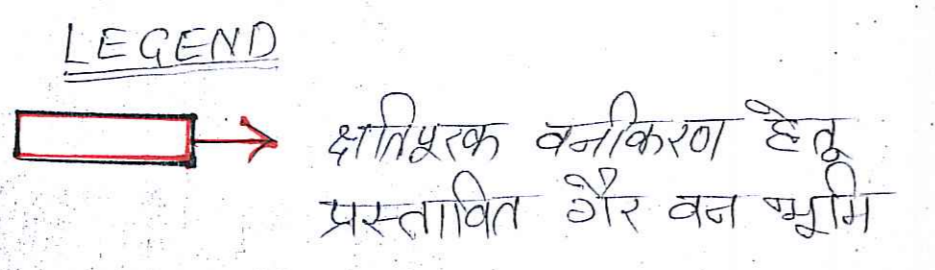 LEGEND
क्षतिपूरक वनीकरण हेतू
प्रस्तावित गैर वन भूमि